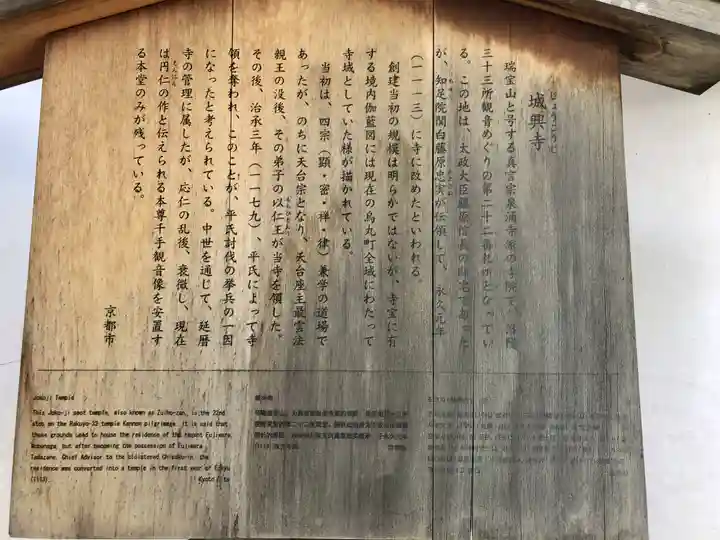 じょうこうじ
城興寺
瑞宝山と号する真言宗泉涌寺派の寺院で、洛陽
三十三所観音めぐりの第二十二番札所となってい
る。この地は、太政大臣藤原信長の邸宅であった
が、知足院関白藤原忠実が伝領して、永久元年
(一一一三)に寺に改めたといわれる。
創建当初の規模は明らかではないが、寺宝に有
する境内伽藍図には現在の烏丸町全域にわたって
寺域としていた様が描かれている。
当初は、四宗(顕・密・禅・律)兼学の道場で
あったが、のちに天台宗となり、天台座主最雲法
親王の没後、その弟子の以仁王が当寺を領した。
その後、治承三年(一一七九)、平氏によって寺
領を奪われ、このことが、平氏討伐の挙兵の一因
になったと考えられている。中世を通じて、延暦
寺の管理に属したが、応仁の乱後、衰微し、現在
は円仁の作と伝えられる本尊千手観音像を安置す
る本堂のみが残っている。
京都市
Jokoji Temple
This Joko-ji sect temple, also known as Zuiho-zan, is the 22nd
stop on the Rakuyo-33 temple Kannon pilgrimage. It is said that
these grounds used to house the residence of the regent Fujiwara
Nobunaga, but after becoming the possession of Fujiwara
Tadazane, Chief Advisor to the cloistered Chisoku-in, the
residence was converted into a temple in the first year of Eikyu
(1113).
Kyoto City